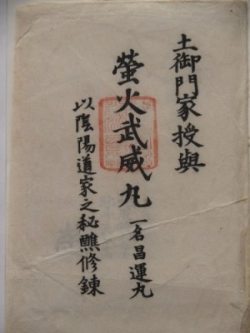 土御門家授與
螢火武威丸 一名昌運丸
以陰陽道家之秘醮修錬